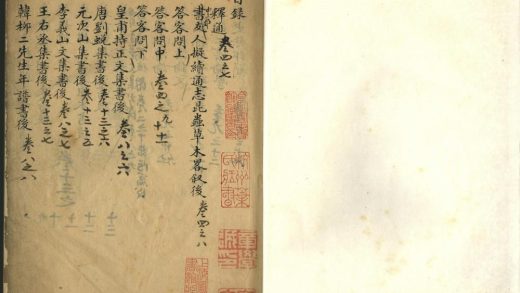 目錄
釋通 卷四之七
人擬續通志昆蟲草木畧叙後 卷四之八
答客問上
答客問中 卷四之九 十 十一
答客問下
皇甫持正文集書後 卷八之六
唐劉蛻集書後 卷十三之六
元次山集書後 卷十三之五
李義山文集書後 卷八之七
王右丞集書後 卷十三之七
韓柳二先生年譜書後 卷八之八
杭州葉氏藏書